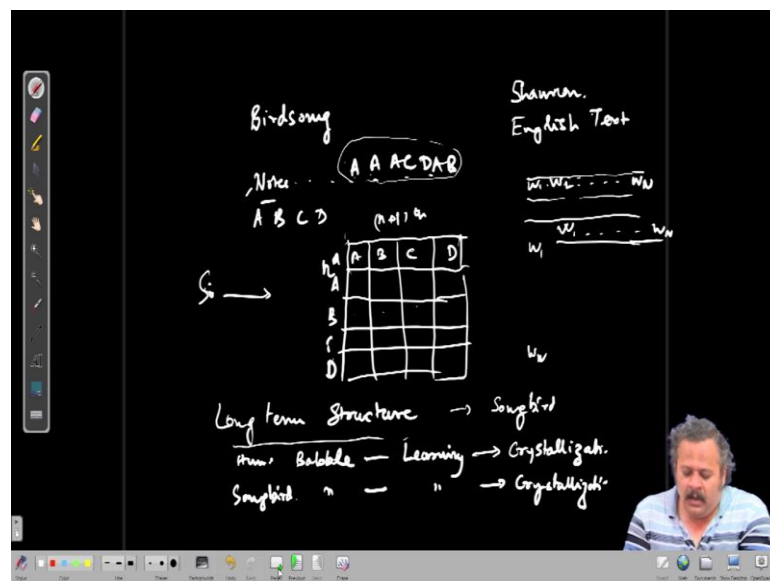 Birdsong
A A A C D A B
Notes
A B C D
(n+1) th
n th A B C D
A
B
C
D
Shannon.
English Text
W1 W2 ..... WN
W1 ..... WN
W1
WN
Long term Structure → Songbird
Hum. Babble — Learning → Crystallizati.
Songbird. " — " → Crystallizati-